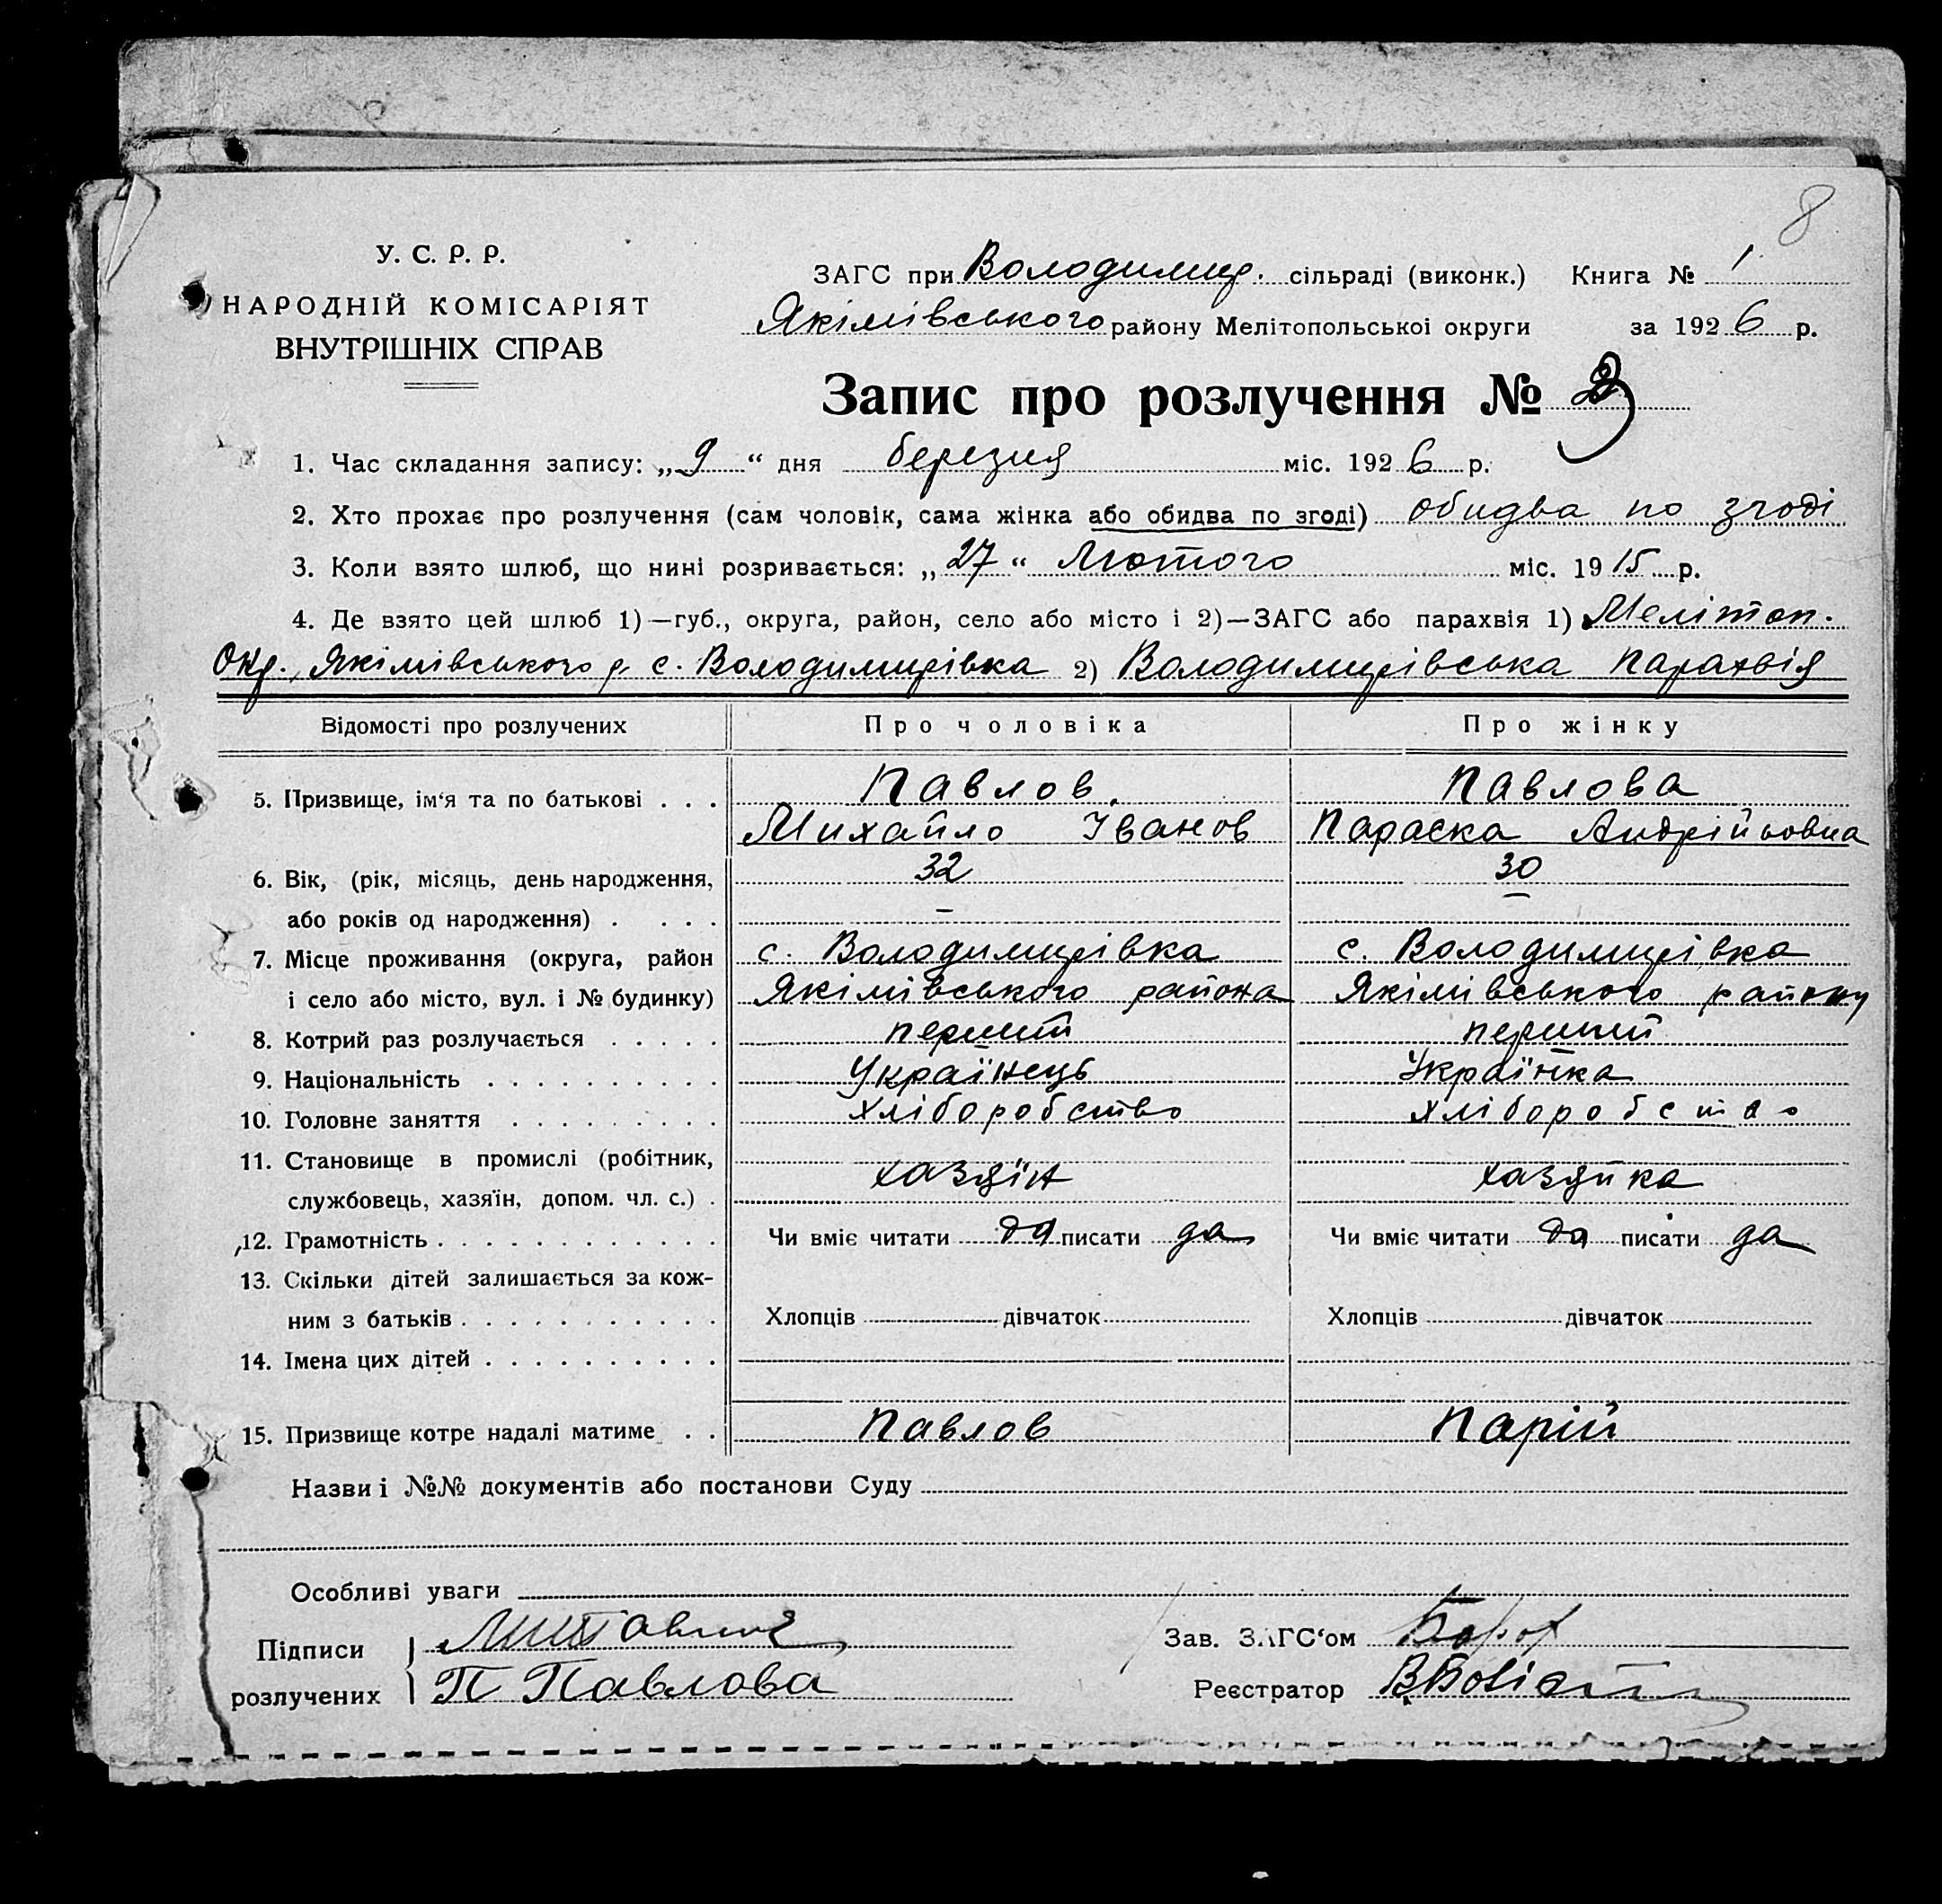 8
У. С. Р. Р.
НАРОДНІЙ КОМІСАРІЯТ
ВНУТРІШНІХ СПРАВ
ЗАГС при Володимир. сільраді (виконк.) Книга № 1
Якімівського району Мелітопольської округи за 1926 р.
Запис про розлучення №
1. Час складання запису: „9“ дня березня міс. 1926 р.
2. Хто прохає про розлучення (сам чоловік, сама жінка або обидва по згоді) обидва по згоді
3. Коли взято шлюб, що нині розривається: „27“ Лютого міс. 1915 р.
4. Де взято цей шлюб 1)—губ., округа, район, село або місто і 2)—ЗАГС або парахвія 1) Мелітоп.
Окр., Якімівського р. с. Володимирівка 2) Володимирівська парахвія
Відомості про розлучених Про чоловіка Про жінку
5. Призвище, ім‘я та по батькові . . . Павлов. Павлова
Михайло Іванов Параска Андрійовна
6. Вік, (рік, місяць, день народження, 32 30
або років од народження) . . . . – –
7. Місце проживання (округа, район с. Володимирівка с. Володимирівка
і село або місто, вул. і № будинку) Якімівського района Якімівського району
8. Котрий раз розлучається . . . . . перший перший
9. Національність . . . . . . . . . . Українець Українка
10. Головне заняття . . . . . . . . . хліборобство хліборобство
11. Становище в промислі (робітник, хазяїн хазяйка
службовець, хазяїн, допом. чл. с.) .
12. Грамотність . . . . . . . . . . . . Чи вміє читати да писати да Чи вміє читати да писати да
13. Скільки дітей залишається за кож-
ним з батьків . . . . . . . . . . . Хлопців дівчаток Хлопців дівчаток
14. Імена цих дітей . . . . . . . . . .
15. Призвище котре надалі матиме . . Павлов Парій
Назви і №№ документів або постанови Суду
Особливі уваги
Підписи Зав. ЗАГС‘ом
розлучених П Павлова Реєстратор